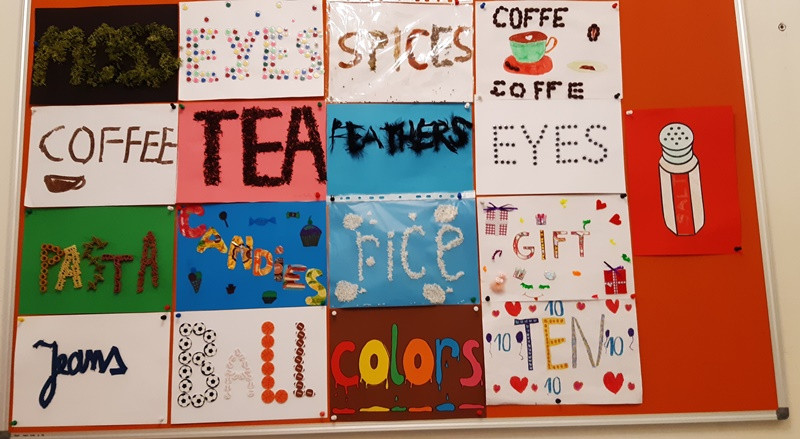 MOSS
EYES
SPICES
COFFE
COFFE
COFFEE
TEA
FEATHERS
EYES
SALT
PASTA
CANDIES
RICE
GIFT
Jeans
BALL
colors
10
10 TEN 10
10